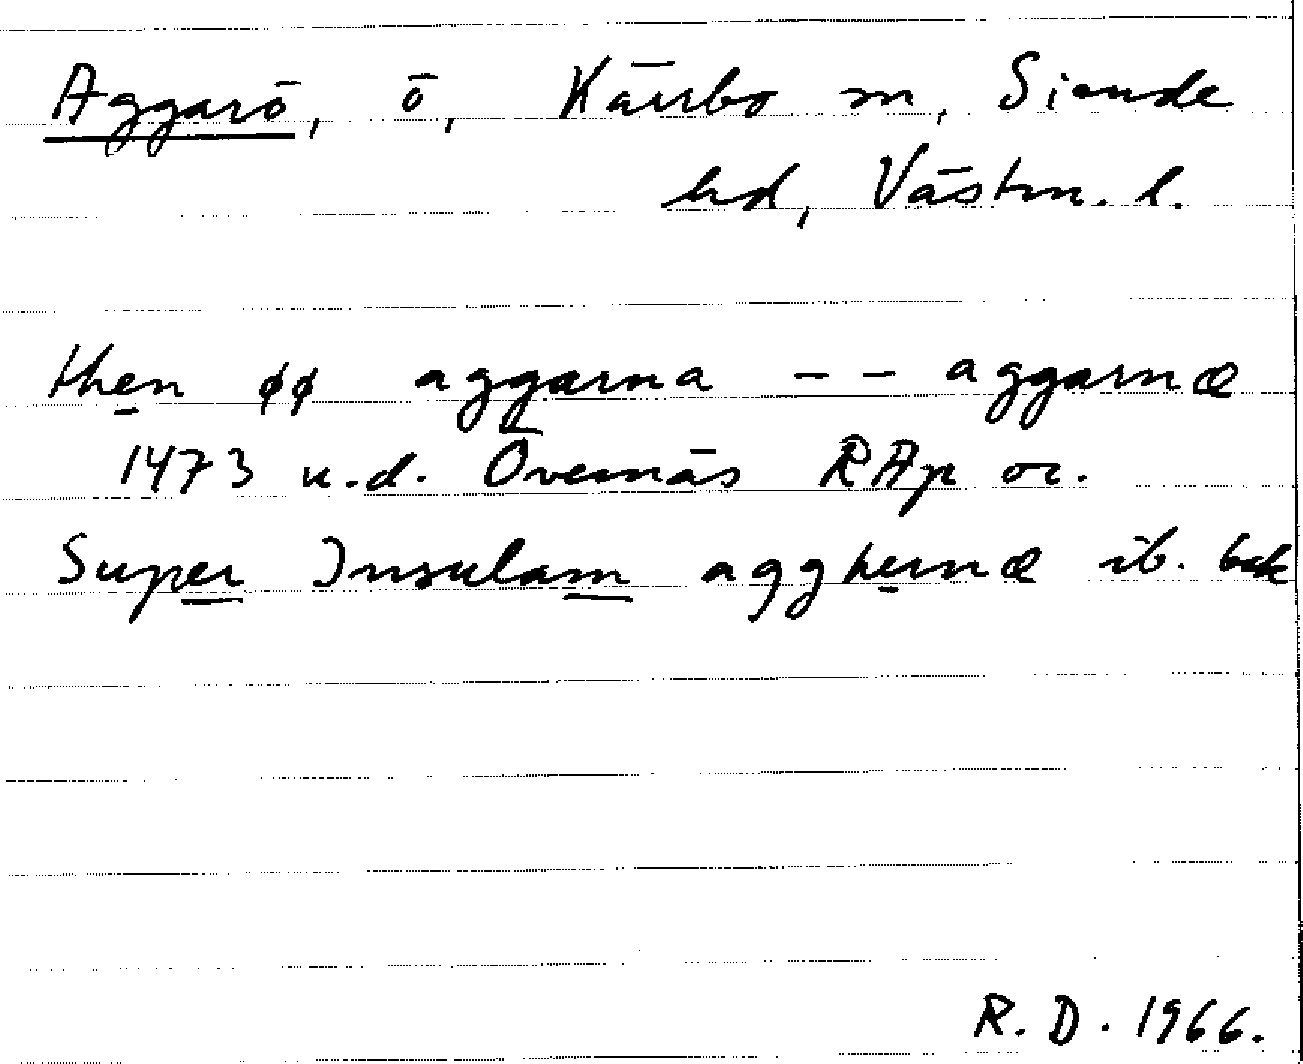 Aggarö, ö, Kärrbo sn, Siende
hd, Västm. l.
then øø aggarna -- aggarnæ
1473 u.d. Övernäs RAp or.
Super Insulam agghernæ ib. bak
R.D. 1966.